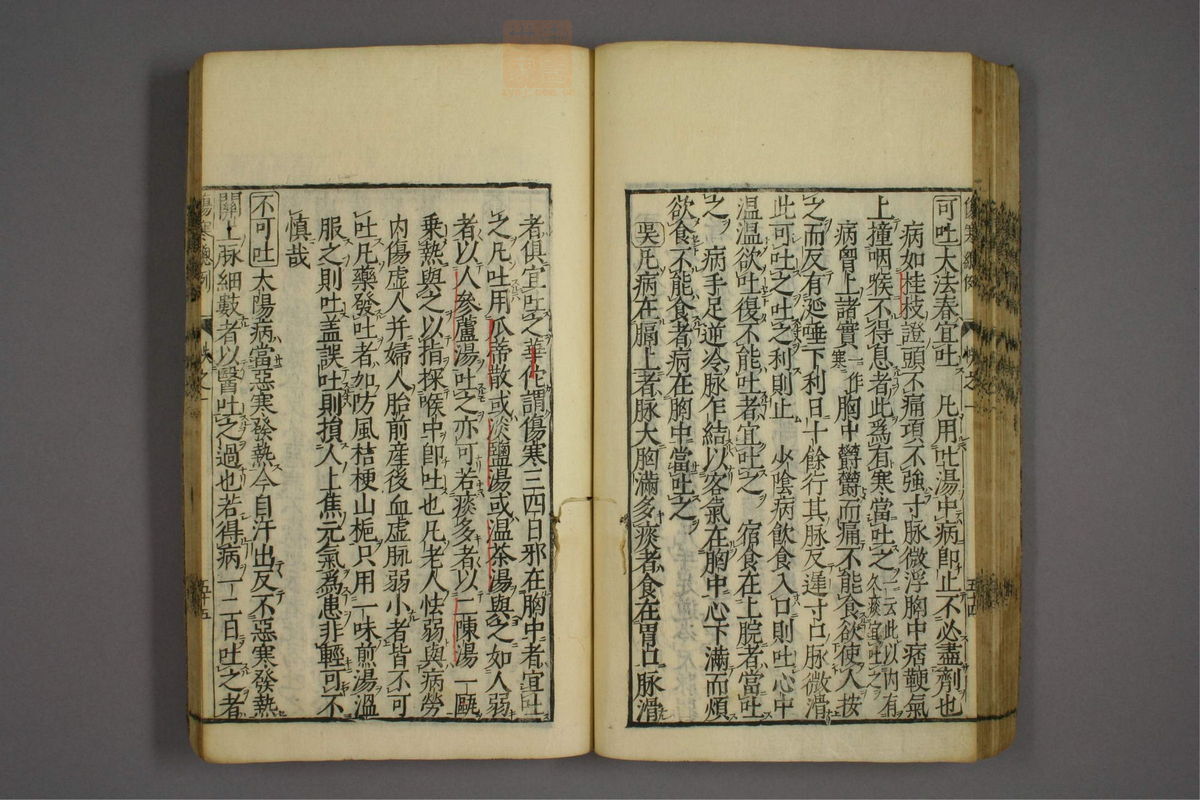 可吐 大法春宜吐 凡用吐湯中病即止不必盡劑也
病如桂枝證頭不痛項不強寸脉微浮胸中痞鞕氣
上撞咽喉不得息者此爲有寒當吐之一云此以内有久痰宜吐之
病胷上諸實一作寒胸中鬱鬱而痛不能食欲使人按
之而反有涎唾下利日十餘行其脉反遲寸口脉微滑
此可吐之吐之利則止 少陰病飲食入口則吐心中
温温欲吐復不能吐者宜吐之 宿食在上脘者當吐
之 病手足逆冷脉乍結以客氣在胸中心下滿而煩
欲食不能食者病在胸中當吐之
吳 凡病在膈上者脉大胸滿多痰者食在胃口脉滑
者俱宜吐之華佗謂傷寒三四日邪在胸中者宜吐
之凡吐用瓜蒂散或淡鹽湯或温茶湯與之如人弱
者以人參蘆湯吐之亦可若痰多者以二陳湯一甌
乗熱與之以指探喉中即吐也凡老人怯弱與病勞
内傷虚人并婦人胎前産後血虚脉弱小者皆不可
吐凡藥發吐者如防風桔梗山梔只用一味煎湯温
服之則吐盖誤吐則損人上焦元氣爲患非輕可不
慎哉
不可吐 太陽病當惡寒發熱今自汗出反不惡寒發熱
關上脉細數者以醫吐之過也若得病一二日吐之者
五十四
五十五